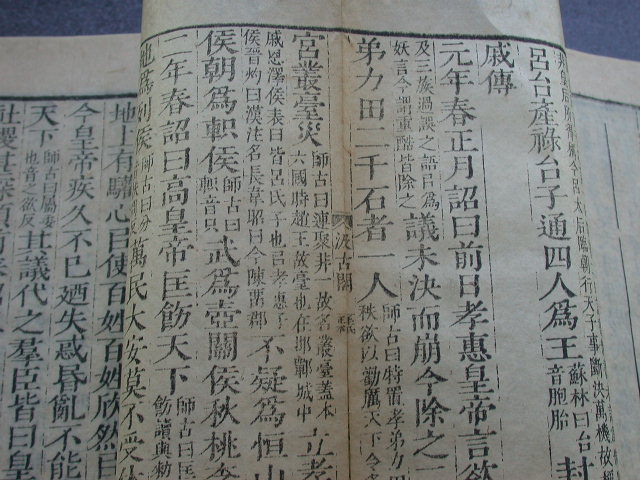 今呂太后臨朝行天子事斷決萬機故稱
呂台產祿台子通四人為王蘇林曰台音胞胎封
戚傳
元年春正月詔曰前日孝惠皇帝言欲
及三族過誤之語㠯為妖言今謂重酷皆除之議未決而崩今除之二
弟力田二千石者一人師古曰特置孝弟力田秩欲以勸厲天下令各
汲古閣
宮叢臺災師古曰連聚非一故名叢臺蓋本六國時趙王故臺也在邯鄲城中立孝
戚恩澤侯表曰皆呂氏子也孝惠子侯晉灼曰漢注名長韋昭曰今陳留郡不疑為恒山
侯朝為軹侯師古曰軹音只武為壺關侯秋桃李
二年春詔曰高皇帝匡飭天下師古曰匡飭讀與敕
地為列侯師古曰分萬民大安莫不受休
地上有驩心㠯使百姓百姓欣然㠯
今皇帝疾久不已廼失惑昏亂不能
天下師古曰屬委也音之欲反其議代之羣臣皆曰皇
社稷甚深頓首奉詔